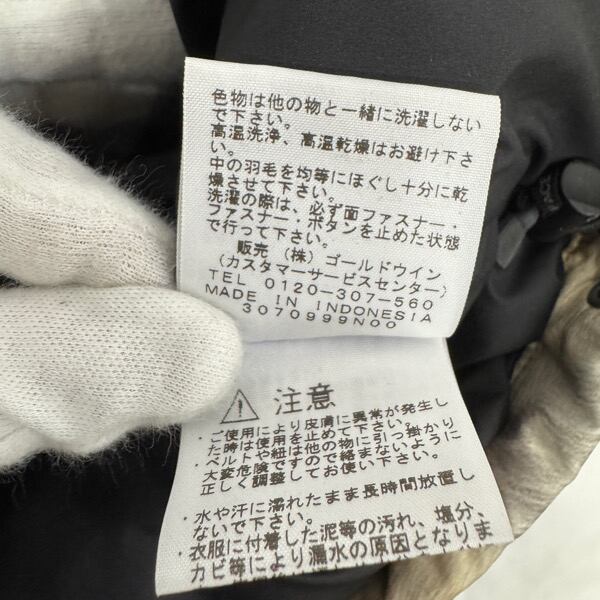 色物は他の物と一緒に洗濯しない
で下さい。
高温洗浄、高温乾燥はお避け下さ
い。
中の羽毛を均等にほぐし十分に乾
燥させて下さい。
洗濯の際は、必ず面ファスナー・
ファスナー・ボタンを止めた状態
で行って下さい。
販売 (株) ゴールドウイン
(カスタマーサービスセンター)
TEL 0120-307-560
MADE IN INDONESIA
3070999N00
注意
・ご使用により皮膚に異常が発生し
た時は使用を止めて下さい。
・ベルトや紐は他の物に引っ掛かり
大変危険ですので絡まないように
正しく調整してお使い下さい。
・水や汗に濡れたまま長時間放置し
ないで下さい。
・衣服に付着した泥等の汚れ、塩分、
カビ等により漏水の原因となりま